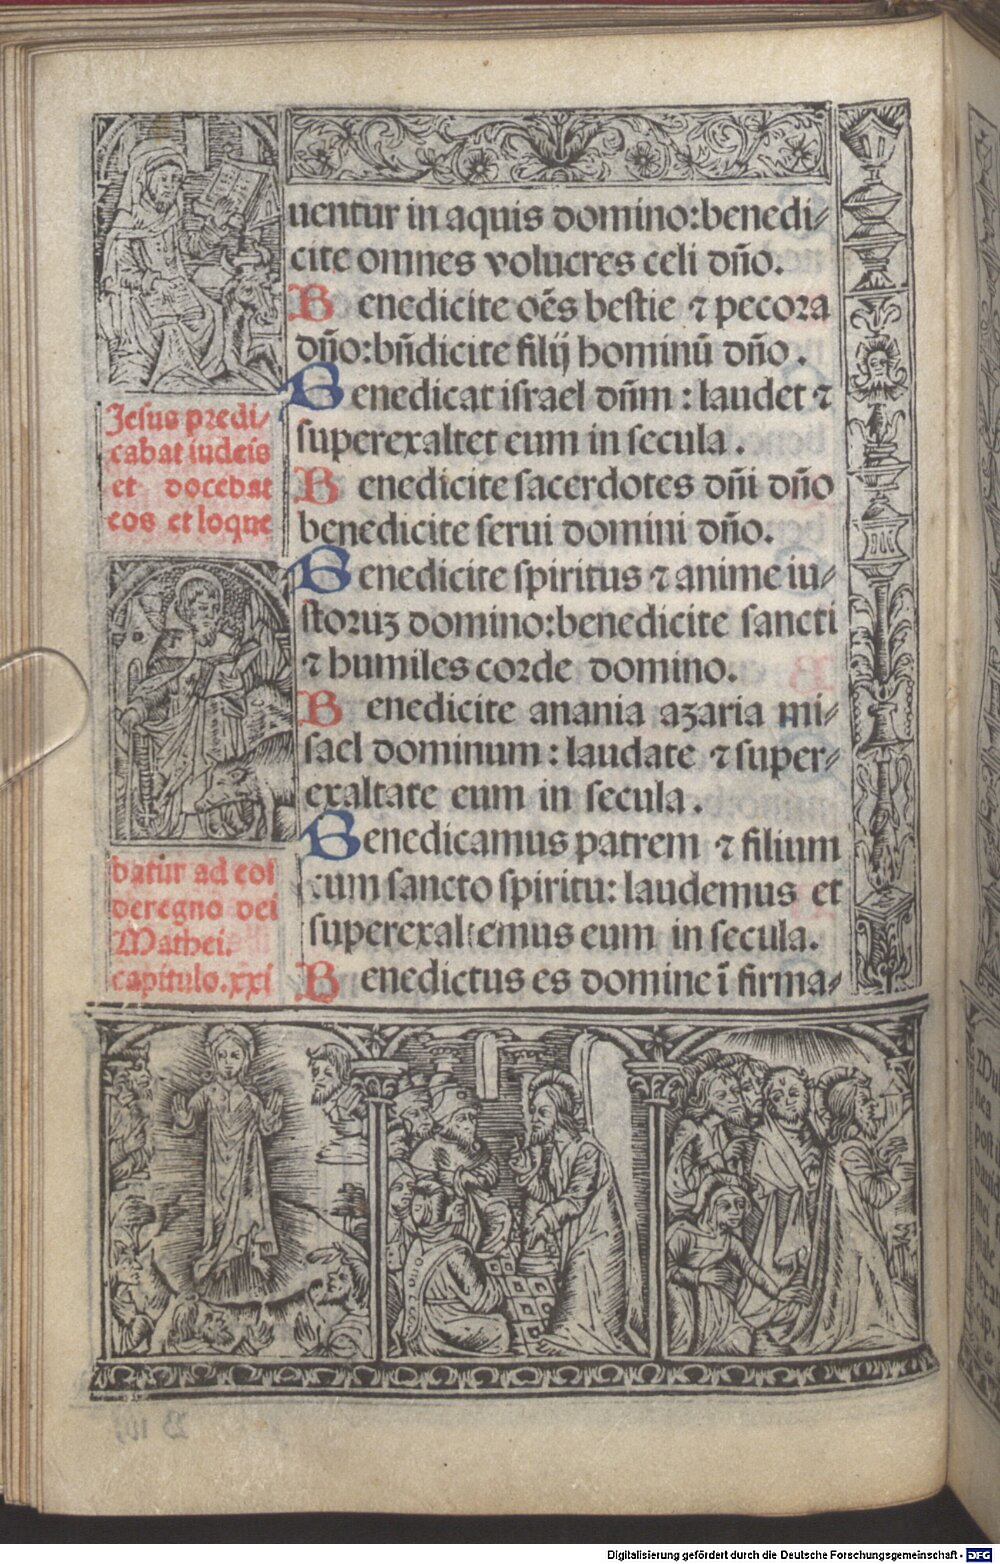 uentur in aquis domino:benedi-
cite omnes volucres celi dño.
Benedicite oēs bestie ⁊ pecora
dño:bñdicite filij hominū dño.
Benedicat israel dñm : laudet ⁊
superexaltet eum in secula.
Benedicite sacerdotes dñi dño
benedicite serui domini dño.
Benedicite spiritus ⁊ anime iu-
storuꝫ domino:benedicite sancti
⁊ humiles corde domino.
Benedicite anania azaria mi-
sael dominum : laudate ⁊ super-
exaltate eum in secula.
Benedicamus patrem ⁊ filium
cum sancto spiritu: laudemus et
superexaltemus eum in secula.
Benedictus es domine ī firma-
Jesus predi-
cabat iudeis
et docebat
eos et loque
batur ad eos
de regno dei
Mathei.
capitulo.xxi
Digitalisierung gefördert durch die Deutsche Forschungsgemeinschaft - DFG